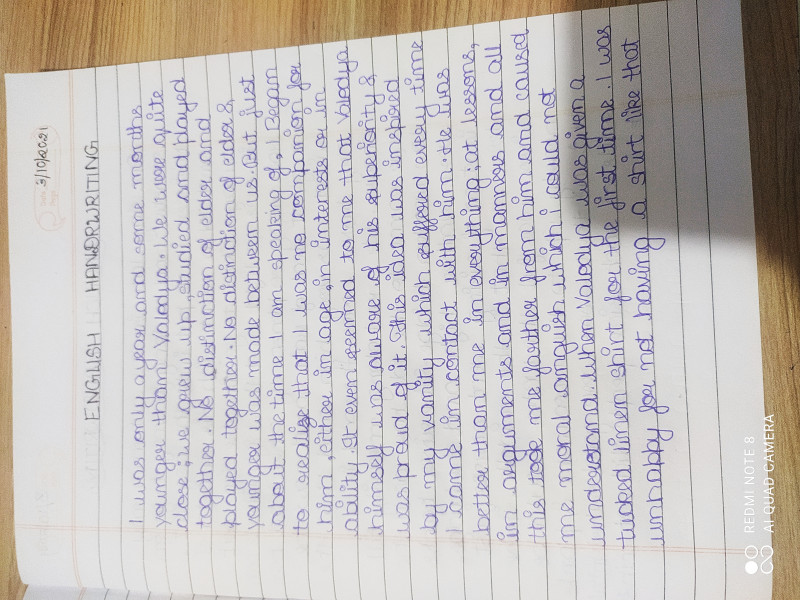 3/10/2021
ENGLISH HANDRWRITING
I was only a year and some months
younger than Valodya. We were quite
close, we grew up, studied and played
together. No distinction of elder and
played together. No distinction of elder &
younger was made between us. But just
about the time I am speaking of, I Began
to realize that I was no companion for
him, either in age, in interests or in
ability. It even seemed to me that Valodya
himself was aware of his superiority &
was proud of it. This idea was inspired
by my vanity which suffered every time
I came in contact with him. He was
better than me in everything; at lessons,
in arguments and in manners and all
this took me further from him and caused
me moral anguish which I could not
understand. When Valodya was given a
tucked linen shirt for the first time. I was
unhappy for not having a shirt like that
REDMI NOTE 8
AI QUAD CAMERA